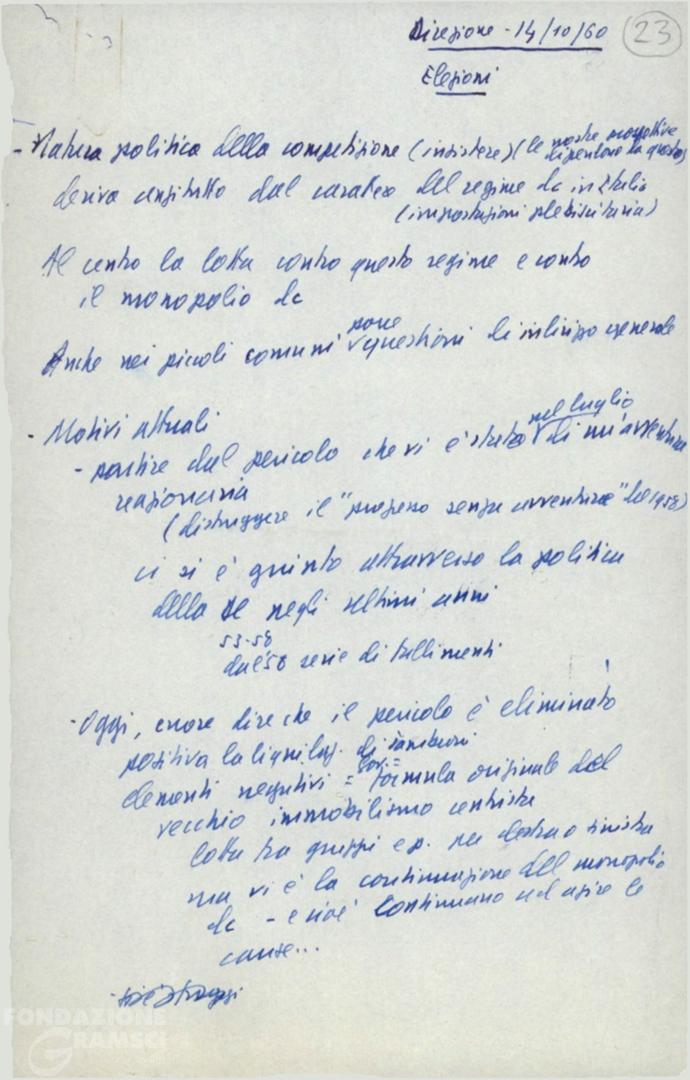 Direzione - 14/10/60
23
Elezioni
- Natura politica della competizione (insistere) (le nostre prospettive dipendono da questo)
deriva anzitutto dal carattere del regime dc in Italia
(impostazioni plebiscitaria)
Al centro la lotta contro questo regime e contro
il monopolio dc
Anche nei piccoli comuni porre questioni di indirizzo generale
- Motivi attuali
- partire dal pericolo che vi è stato nel luglio di un'avventura
reazionaria
(distruggere il "progresso senza avventure" del 1958)
ci si è giunti attraverso la politica
della DC negli ultimi anni
53-58
dal '58 serie di fallimenti
- Oggi, errore dire che il pericolo è eliminato
positiva la liquidaz. di Tambroni
elementi negativi = gov. = formula originale del
vecchio immobilismo centrista
lotta tra gruppi e p. per destra o sinistra
ma vi è la continuazione del monopolio
dc - e cioè continuano ad agire le
cause...
FONDAZIONE
GRAMSCI